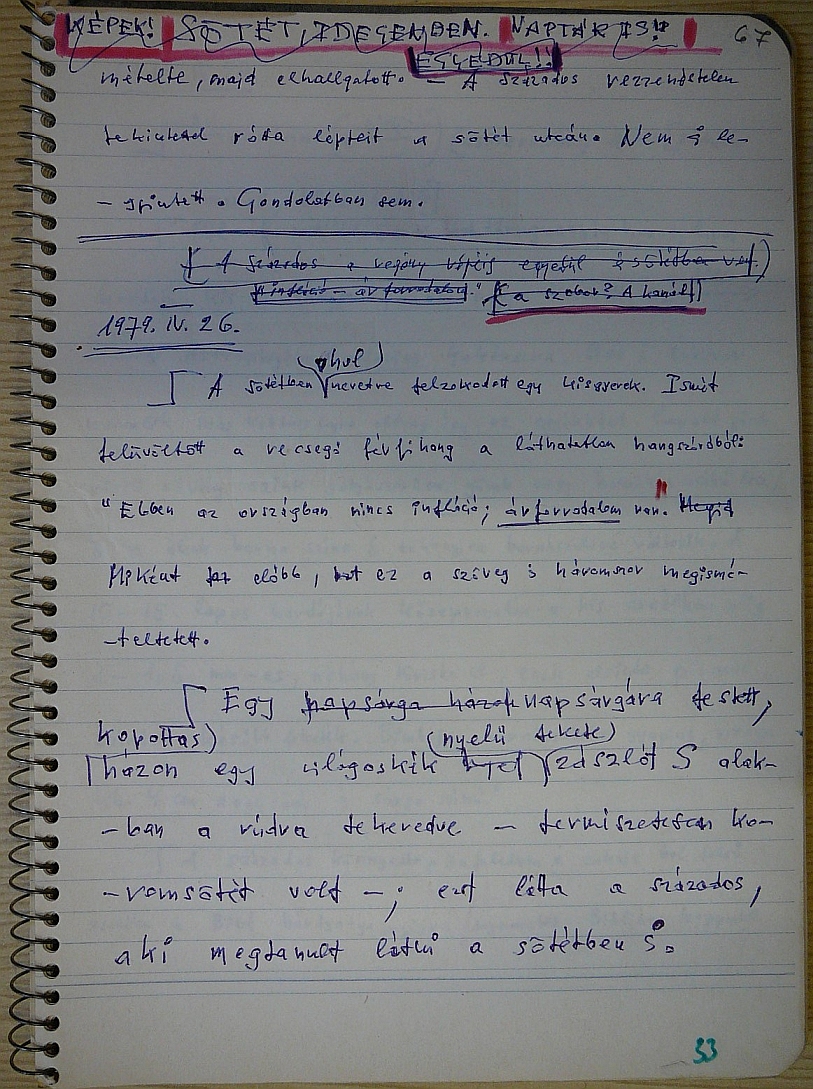 KÉPEK! SÖTÉT, IDEGENBEN. NAPTÁR IS!! 67
EGYEDÜL!!
mételte, majd elhallgatott. – A százados rezzenéstelen
tekintettel rótta lépteit a sötét utcán. Nem is le-
- gyintett. Gondolatban sem.
(A százados a regény végéig egyedül és sötétben van!)
"infláció – árforradalom." (a szobor? A kanál!)
1979. IV. 26.
ahol
A sötétben nevetve felzokodott egy kisgyerek. Ismét
felüvöltött a recsegő férfihang a láthatatlan hangszóróból:
"Ebben az országban nincs infláció; árforradalom van."
Miként az előbb, ez a szöveg is háromszor megismé-
-teltetett.
Egy napsárga házon napsárgára festett,
kopottas)
(nyelű fekete)
házon egy világoskék nyel zászlót S alak-
-ban a rúdra tekeredve – természetesen ko-
-romsötét volt –; ezt látta a százados,
aki megtanult látni a sötétben is.
33